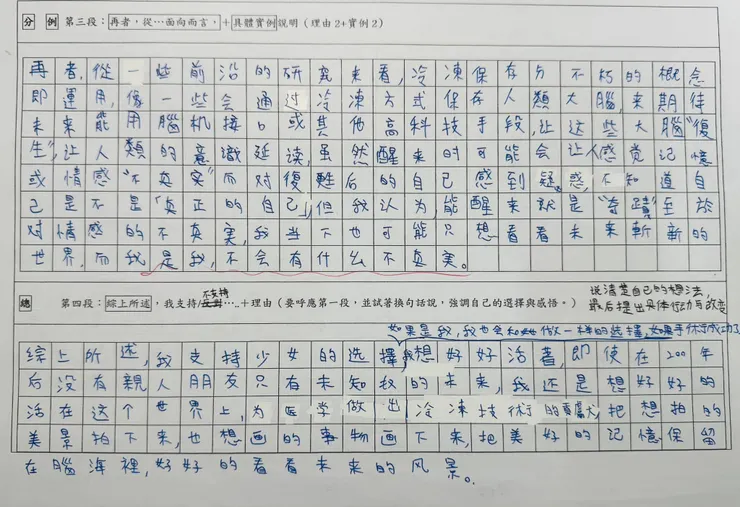 分 例 第三段：再者，從…面向而言，＋具體實例說明（理由2+實例2）
再者，從一些前沿的研究來看，冷凍保存与不朽的概念
即運用，像一些会通过冷凍方式保存人類大腦，来期待
未來能用腦机接口或其他高科技手段，让这些大腦"復
生"，让人類的意識延读，虽然醒来时可能会让人感觉记憶
或情感"不真实"而对復甦后的自己感到疑惑，不知道自
己是不是"真正的自己"，但我认为，能醒来就是"奇蹟"至於
对情感的不真實，我当下也可能只想看看未来斬新的
世界，而我是我，不会有什么不真美。
總 第四段：綜上所述，我支持/不支持…..＋理由（要呼應第一段，並試著換句話說，強調自己的選擇與感悟。）
说清楚自己的想法，
最后提出具体行动与改变
如果是我，我也会和她做一样的选擇，如果手术成功了
综上所述，我支持少女的选擇，我想好好活著，即使在200年
后没有親人朋友只有未知数的未来，我还是想好好的
活在这个世界上，为医学做出冷凍技術的貢獻，把想拍的
美景拍下来，也想画的事物画下来，把美好的记憶保留
在腦海裡，好好的看看未来的风景。